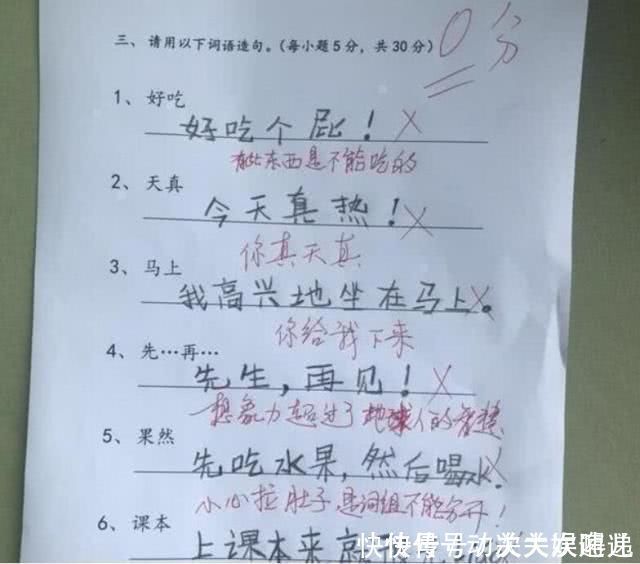 三、请用以下词语造句。(每小题5分，共30分) 0分
1、好吃
好吃个屁！
有些东西是不能吃的
2、天真
今天真热！
你真天真
3、马上
我高兴地坐在马上。
你给我下来
4、先…再…
先生，再见！
想象力超过了地球人的智慧
5、果然
先吃水果，然后喝水。
小心拉肚子，是词组不能分开！
6、课本
上课本来就